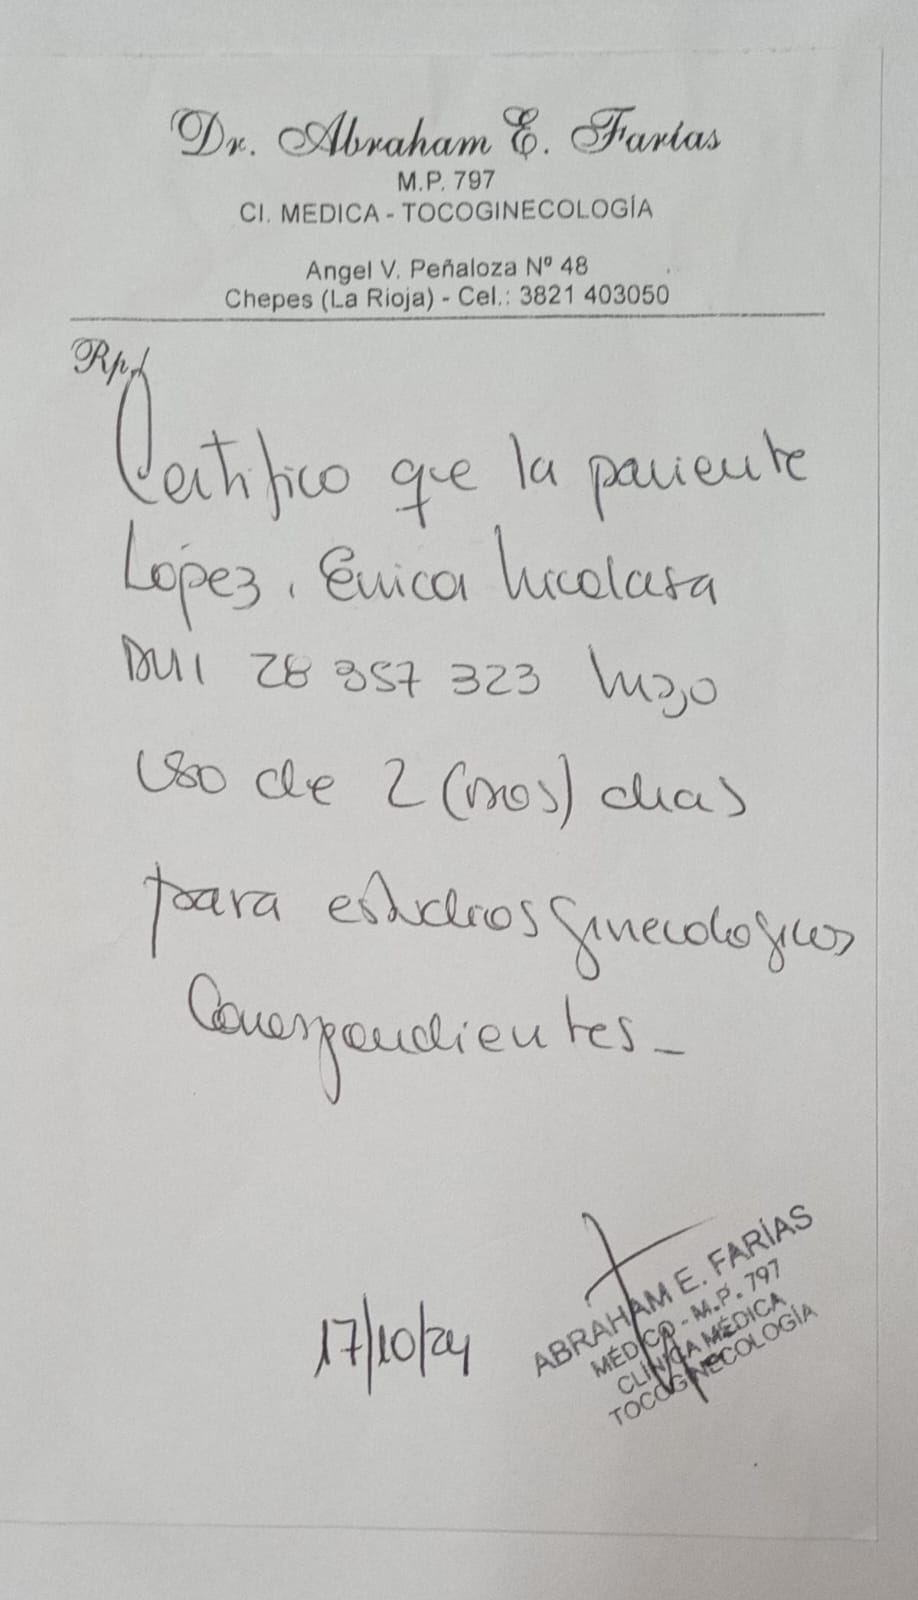 Dr. Abraham E. Farías
M.P. 797
Cl. MEDICA - TOCOGINECOLOGÍA
Angel V. Peñaloza Nº 48
Chepes (La Rioja) - Cel.: 3821 403050
Rp/
Certifico que la paciente
López, Erica Nicolasa
DNI 28 357 323 hizo
uso de 2 (dos) días
para estudios ginecologicos
Correspondientes_
17/10/24
ABRAHAM E. FARÍAS
MÉDICO - M.P. 797
CLÍNICA MÉDICA
TOCOGINECOLOGÍA